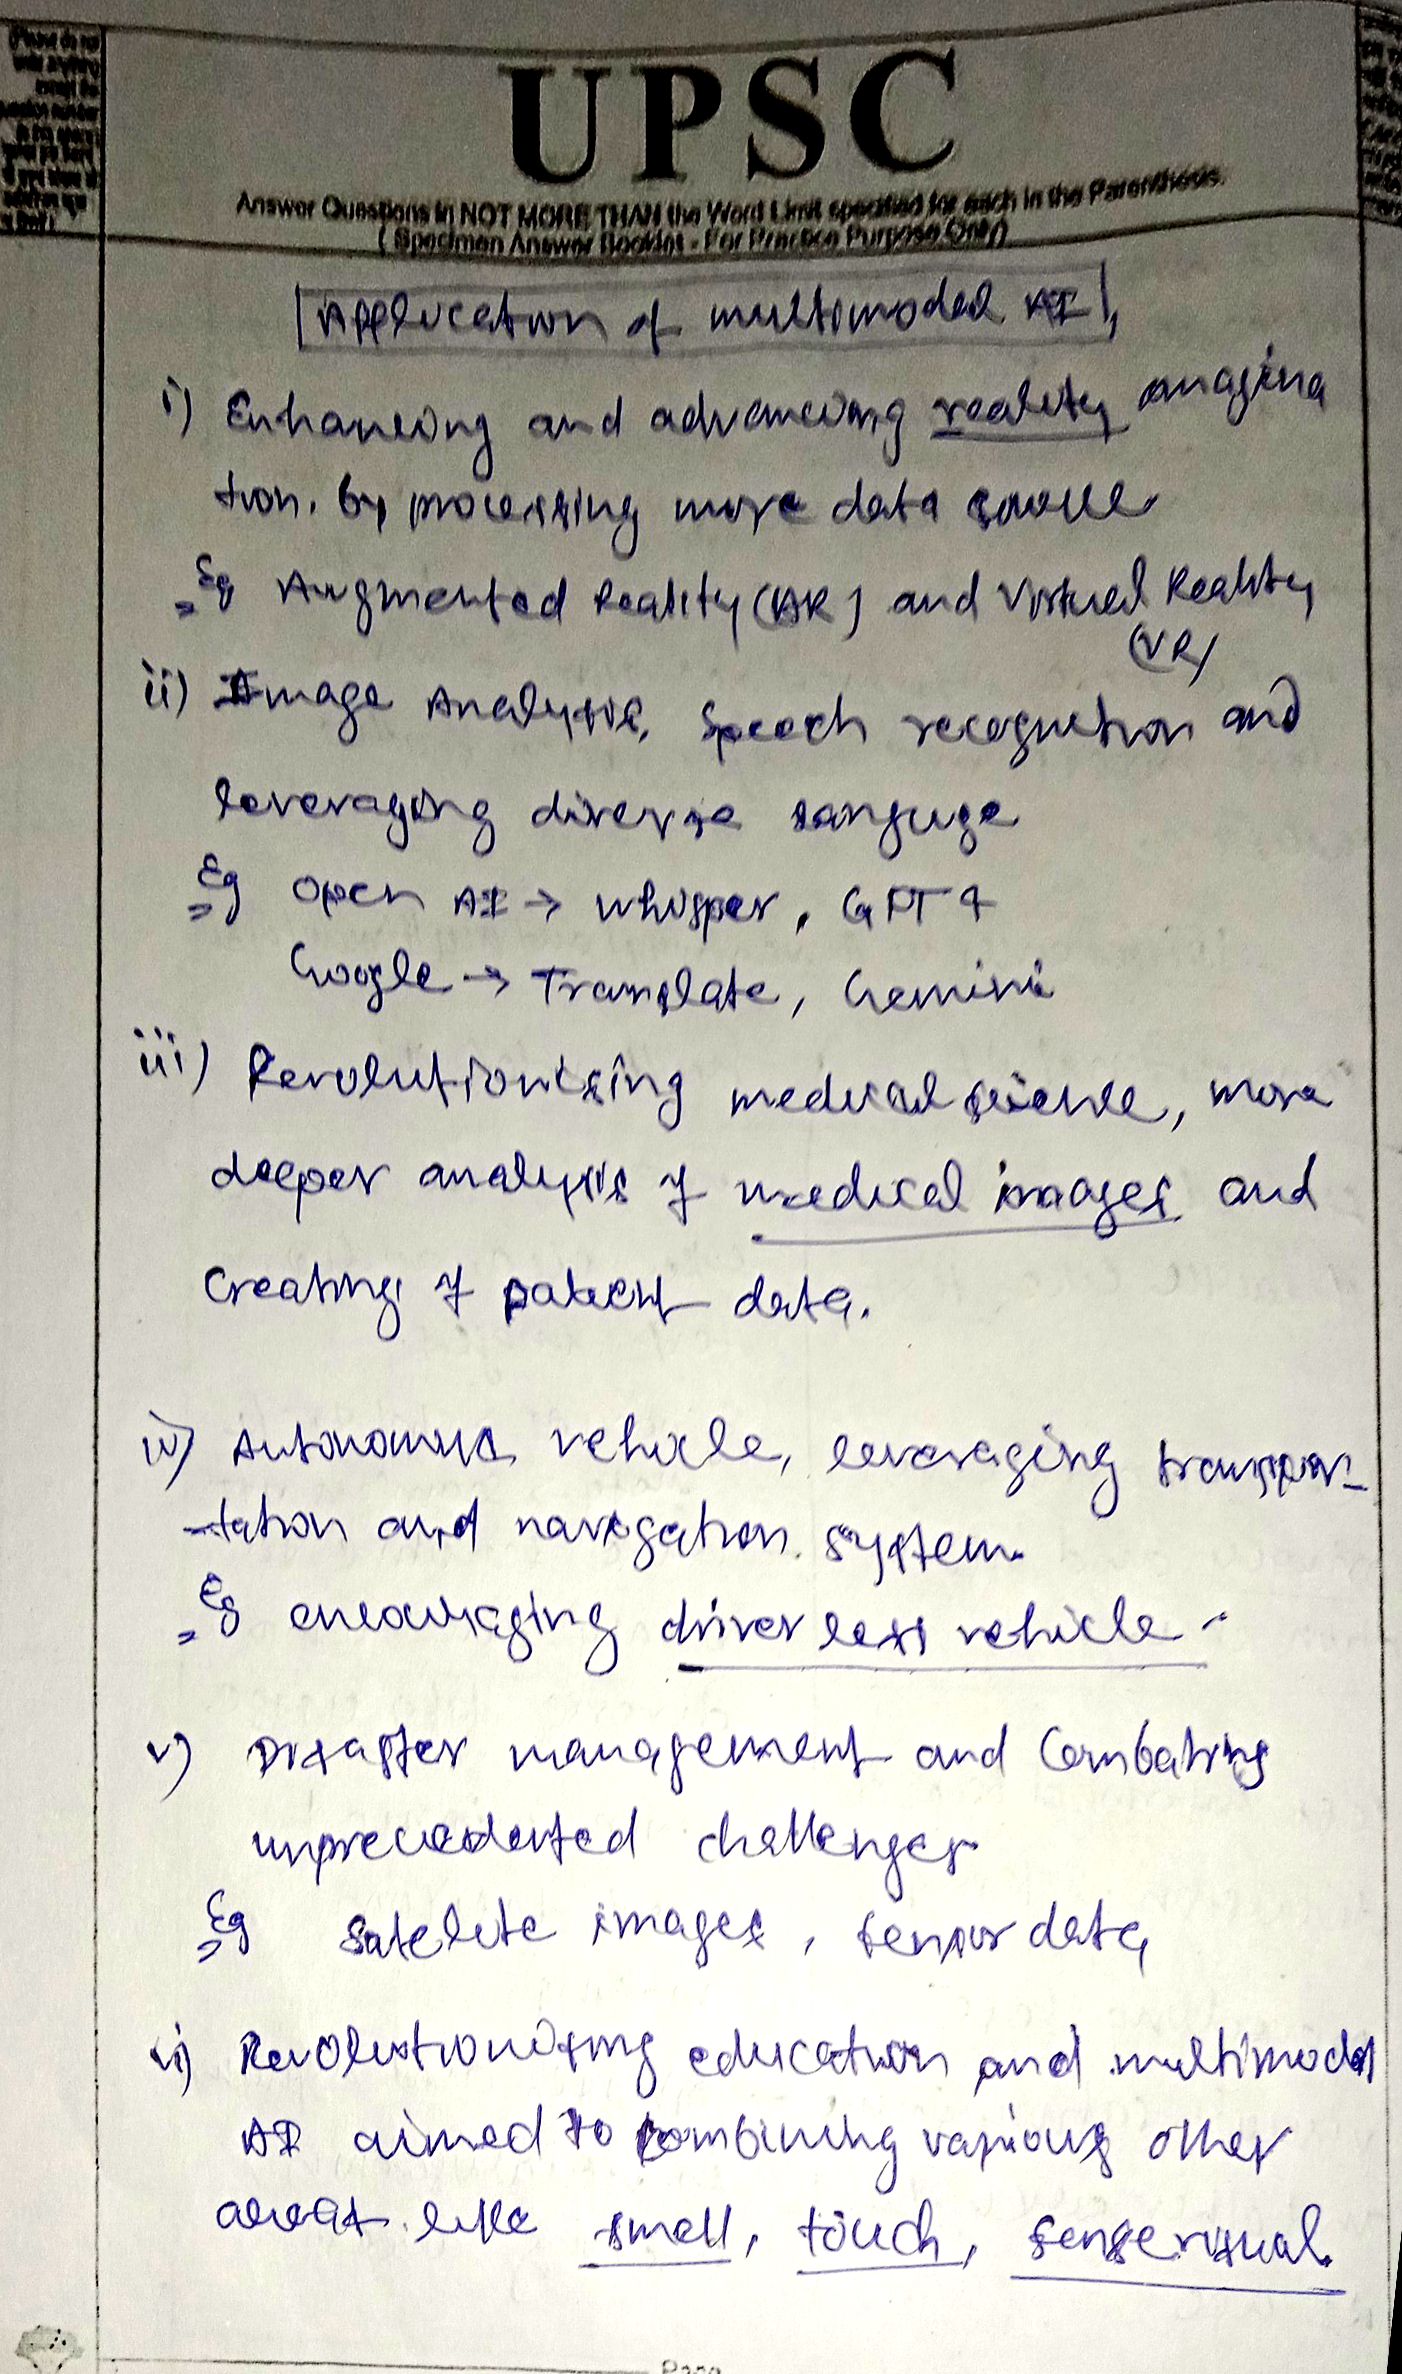 UPSC
Answer Questions in NOT MORE THAN the Word Limit specified for each in the Parenthesis.
( Specimen Answer Booklet - For Practice Purpose Only)
Application of multimodal AI
i) Enhancing and advancing reality imagina
tion. by processing more data source
Eg Augmented Reality (AR) and Virtual Reality
(VR)
ii) Image Analysis, Speech recognition and
leveraging diverse languge
Eg Open AI → whisper, GPT 4
Google → Translate, Gemini
iii) Revolutionising medical science, more
deeper analysis of medical images and
Creating of patient data.
iv) Autonomus vehicle, leveraging transpor-
-tation and navigation system.
Eg encouraging driver less vehicle.
v) Disaster management and Combating
unprecedented challenges
Eg Satelite images, sensor data,
vi) Revolutionising education and multimodal
AI aimed to combining various other
like smell, touch, sense visual.
Page